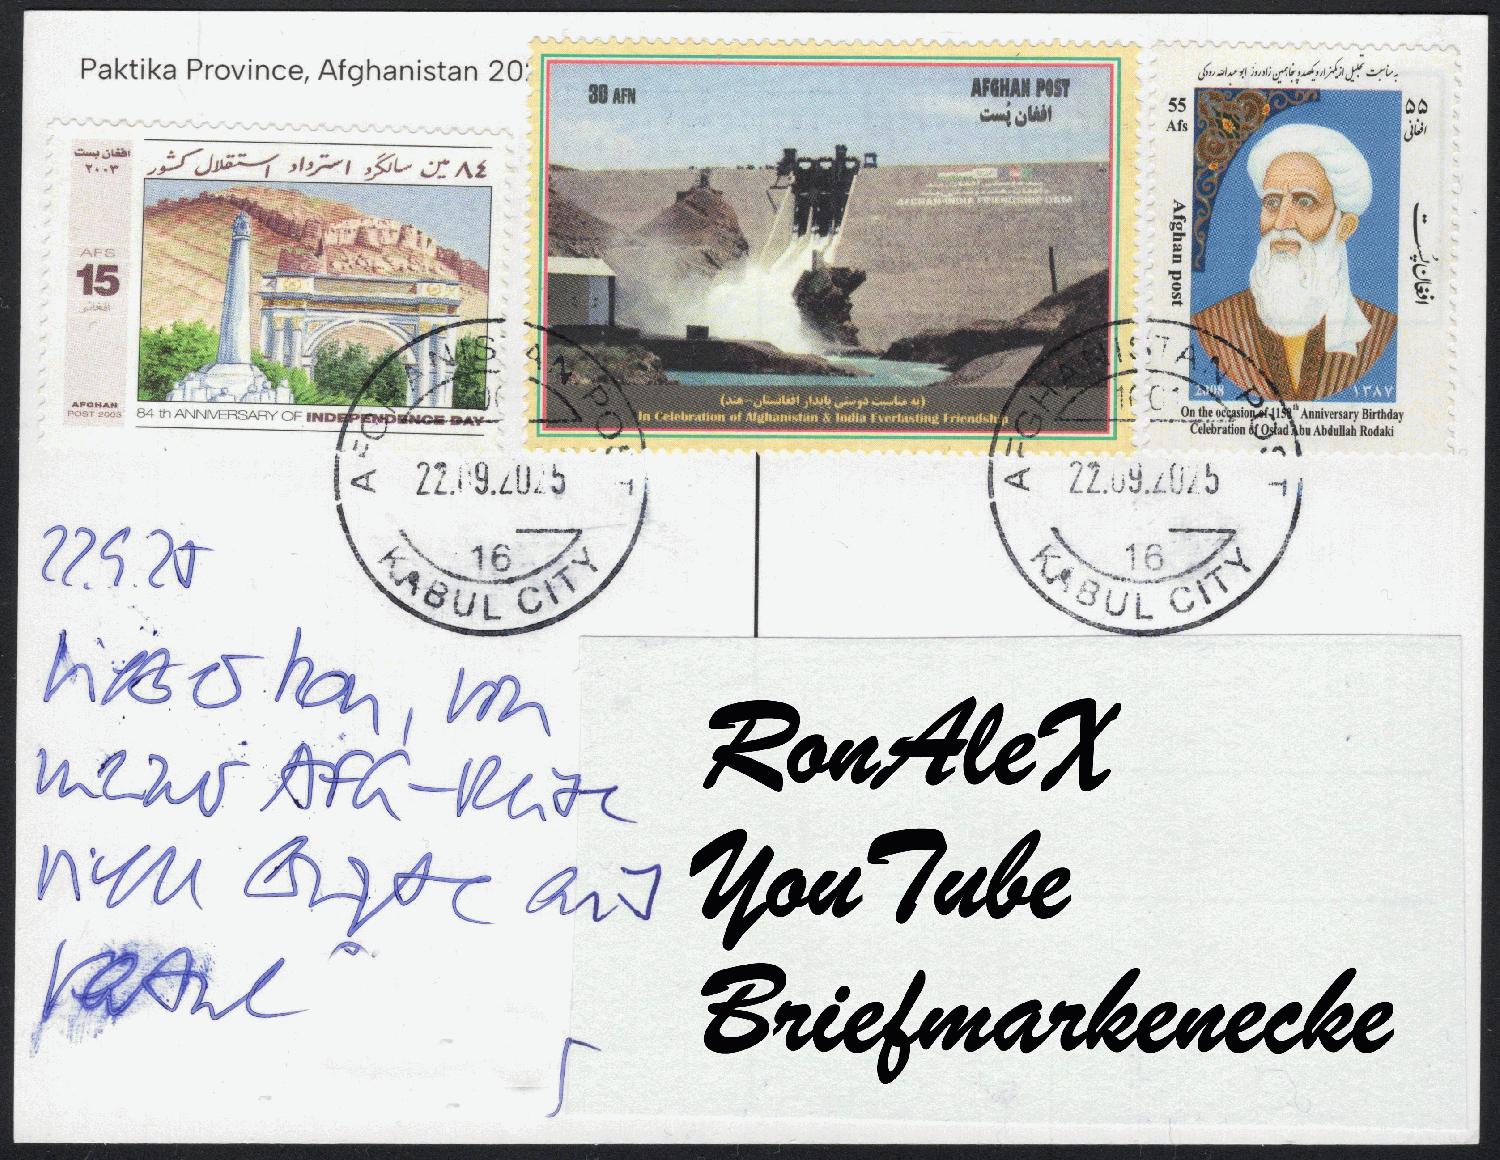 Paktika Province, Afghanistan 20
افغان پست
۲۰۰۳
۸۴ مین سالگرد استرداد استقلال کشور
AFS
15
افغانی
AFGHAN
POST 2003
84th ANNIVERSARY OF INDEPENDENCE DAY
30 AFN
AFGHAN POST
افغان پُست
AFGHAN-INDIA FRIENDSHIP DAM
(به مناسبت دوستی پایدار افغانستان-هند)
In Celebration of Afghanistan & India Everlasting Friendship
به مناسبت تجلیل از یکهزار و یکصد و پنجاهمین زادروز ابو عبدالله رودکی
55
Afs
۵۵
افغانی
Afghan post
افغان پُست
2108
۱۳۸۷
On the occasion of 1150th Anniversary Birthday
Celebration of Ostad Abu Abdullah Rodaki
AFGHANISTAN POST
22.09.2025
16
KABUL CITY
AFGHANISTAN POST
22.09.2025
16
KABUL CITY
22.9.25
von
meiner Afgh-Reise
viele Grüße aus
Kabul
RonAleX
YouTube
Briefmarkenecke